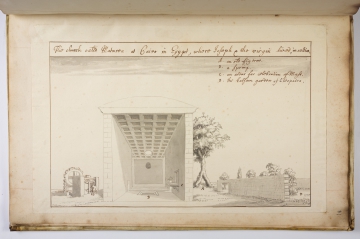 The church calld Matarea at Cairo in Egypt, where Joseph & the virgin lived, in
A an old fig tree
B a spring
C an altar for celebration of Mass
D the balsam garden of Cleopatra.